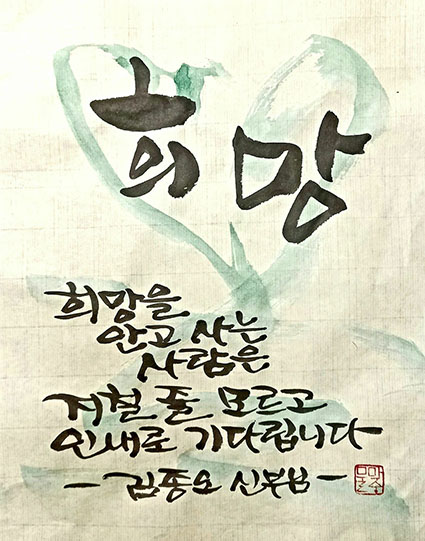 희망
희망을
안고 사는
사람은
지칠 줄 모르고
인내로 기다립니다
- 김종오 신부님 -